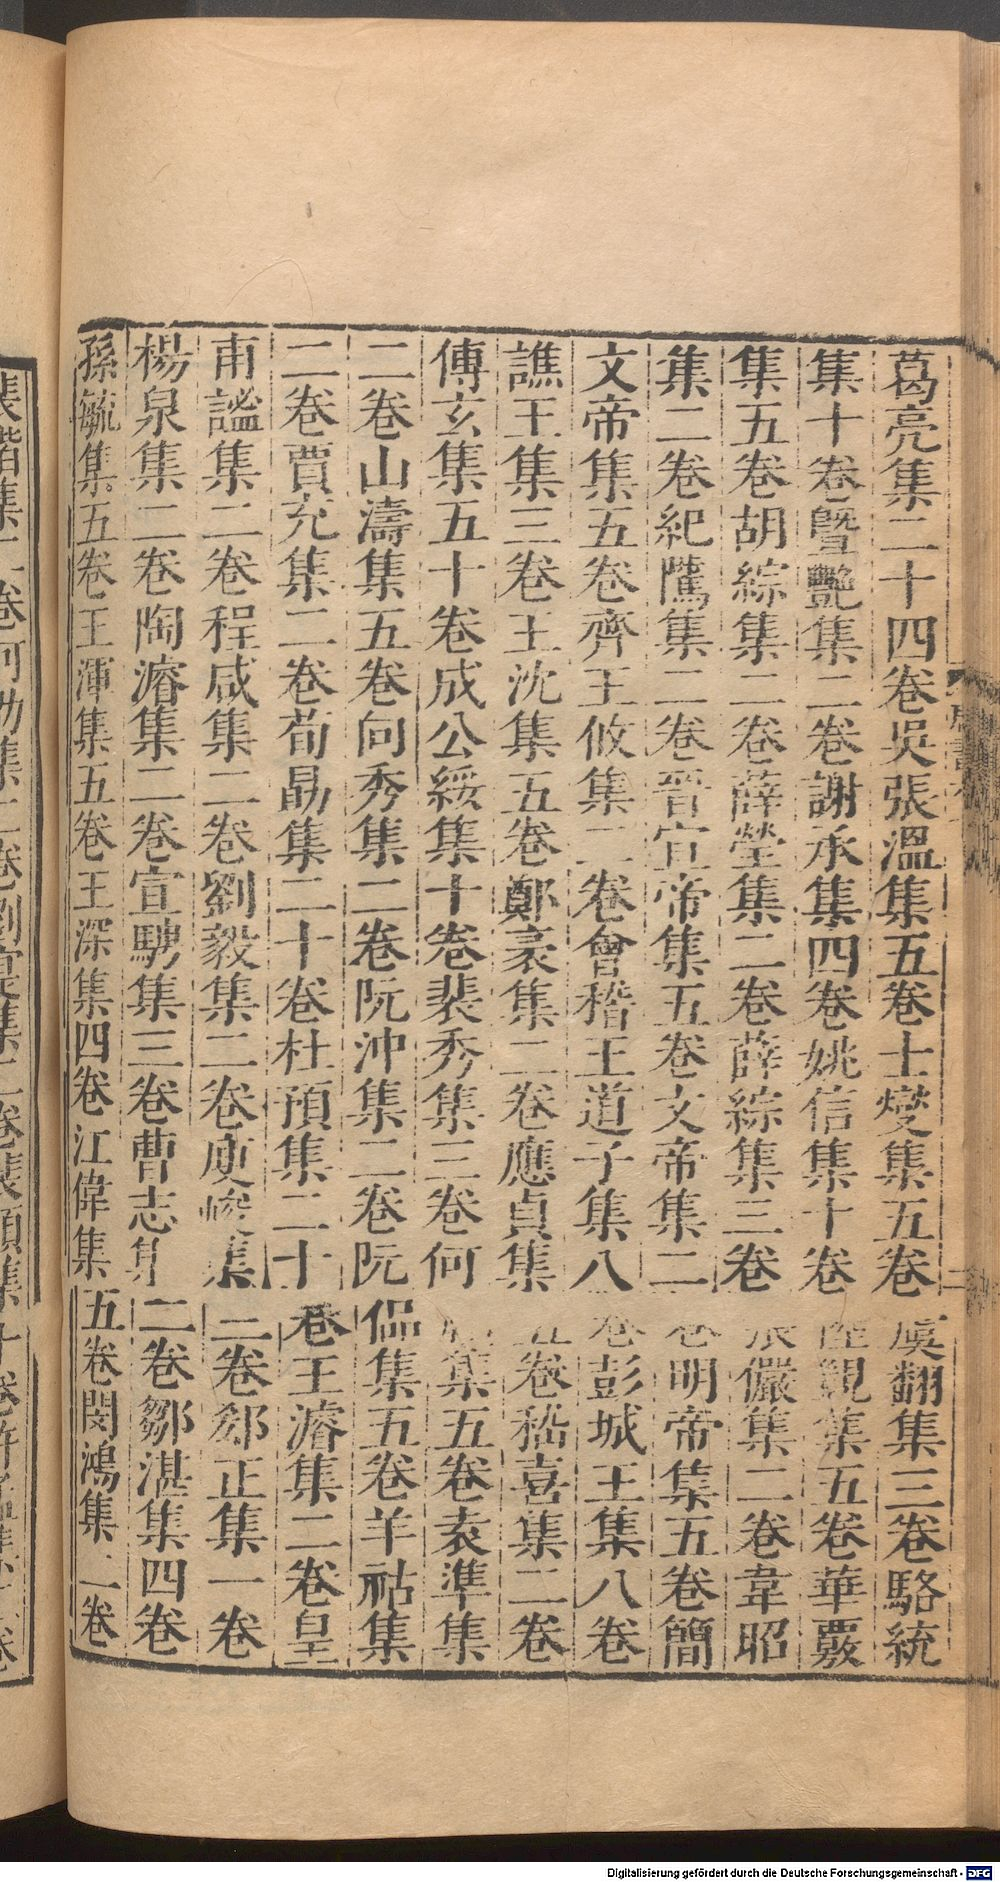 葛亮集二十四卷吳張溫集五卷士燮集五卷虞翻集三卷駱統
集十卷曁豔集二卷謝承集四卷姚信集十卷陸觀集五卷華覈
集五卷胡綜集二卷薛瑩集二卷薛綜集三卷張儼集二卷韋昭
集二卷紀隲集二卷晉宣帝集五卷文帝集二卷明帝集五卷簡
文帝集五卷齊王攸集二卷會稽王道子集八卷彭城王集八卷
譙王集三卷王沈集五卷鄭袤集二卷應貞集五卷嵇喜集二卷
傅玄集五十卷成公綏集十卷裴秀集三卷何集五卷袁準集
二卷山濤集五卷向秀集二卷阮沖集二卷阮侃集五卷羊祜集
二卷賈充集二卷荀勗集二十卷杜預集二十卷王濬集二卷皇
甫謐集二卷程咸集二卷劉毅集二卷庾峻集二卷郄正集一卷
楊泉集二卷陶濬集二卷宣騁集三卷曹志集二卷鄒湛集四卷
孫毓集五卷王渾集五卷王深集四卷江偉集五卷閔鴻集二卷
裴楷集二卷何劭集二卷劉寔集二卷裴頠集十卷許孟集二卷
Digitalisierung gefördert durch die Deutsche Forschungsgemeinschaft - DFG